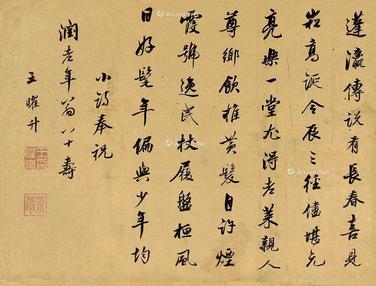 蓬瀛傳說有長春喜見
崧高誕令辰三徑儘堪允
亮樂一堂尤得老萊親人
尊鄉飲推黃髮自許煙
霞號逸民杖履盤桓風
日好髦年偏與少年均
小詩奉祝
潤老年翁八十壽
王曜升